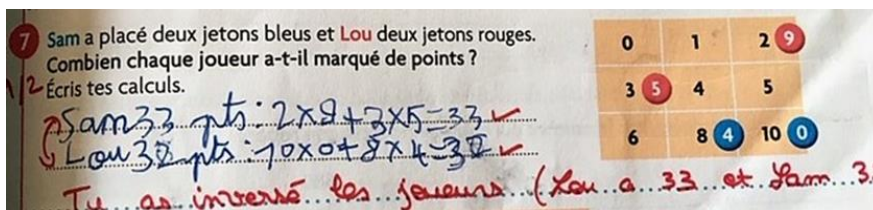 7 Sam a placé deux jetons bleus et Lou deux jetons rouges.
Combien chaque joueur a-t-il marqué de points ?
1/2 Écris tes calculs.
Sam 33 pts : 2x9+3x5=33
Lou 32 pts : 10x0+8x4=32
Tu as inversé les joueurs (Lou a 33 et Sam 3
0 1 2 9
3 5 4 5
6 8 4 10 0